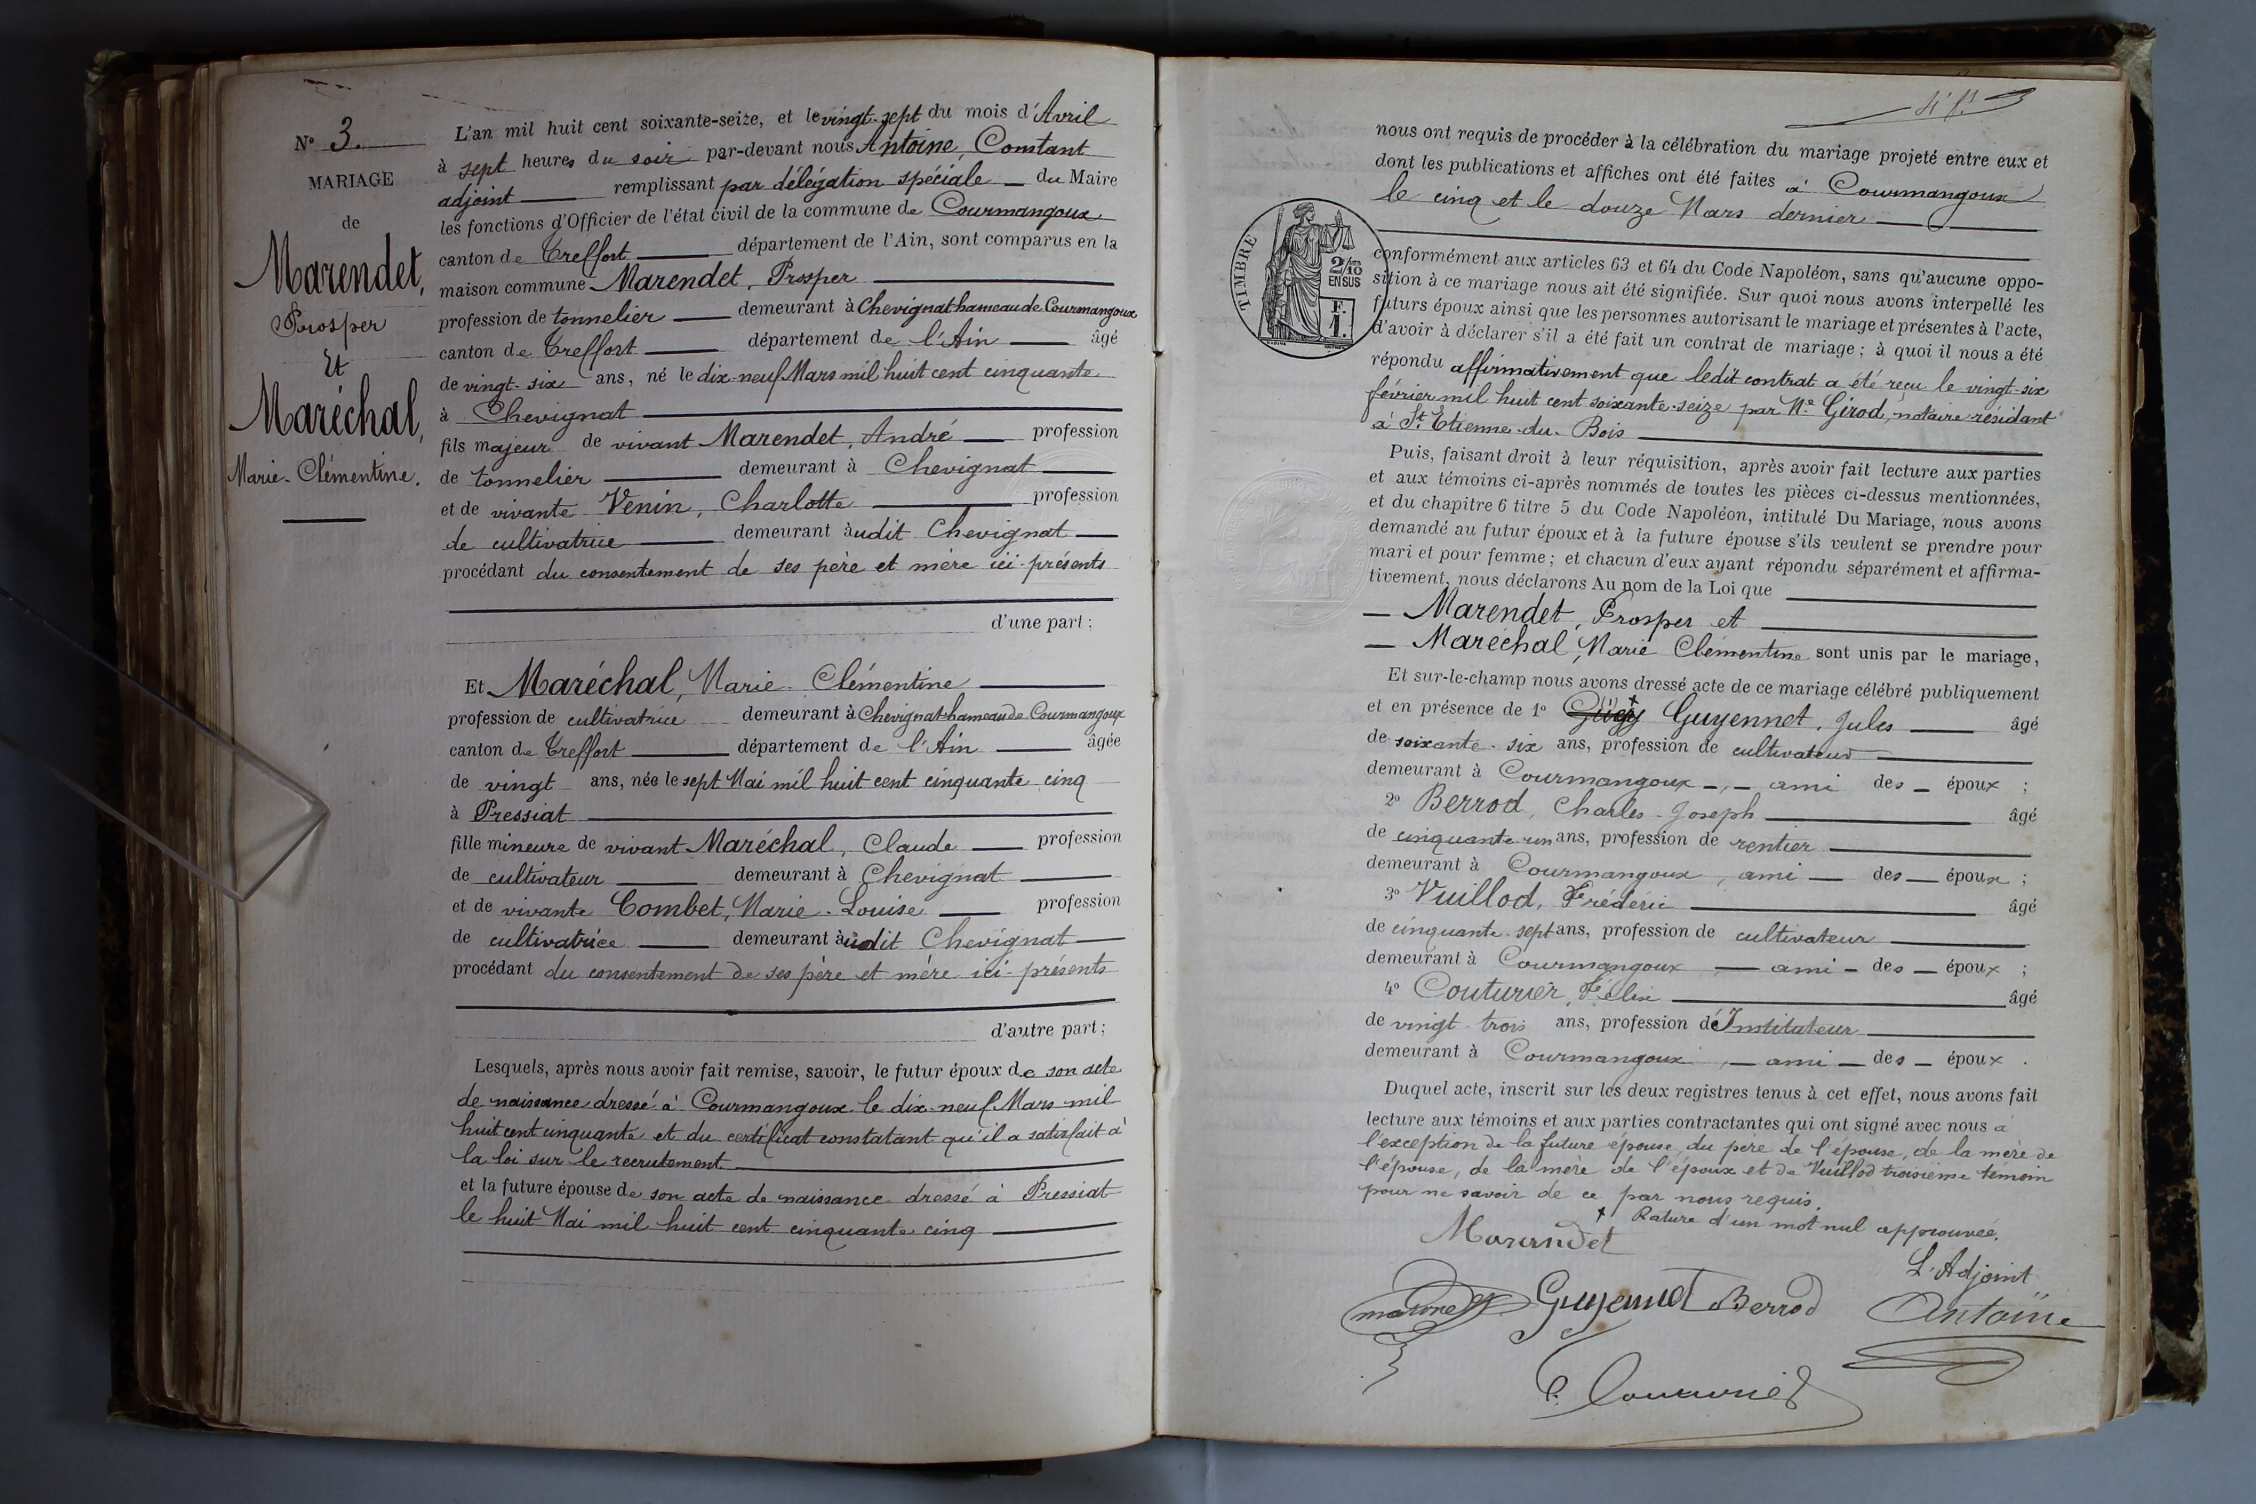 N° 3.
MARIAGE
de
Marendet,
Prosper
Et
Maréchal,
Marie-Clémentine.
L'an mil huit cent soixante-seize, et le vingt-sept du mois d'Avril
à sept heures du soir par-devant nous Antoine, Constant
adjoint remplissant par délégation spéciale du Maire
les fonctions d'Officier de l'état civil de la commune de Courmangoux
canton de Treffort département de l'Ain, sont comparus en la
maison commune Marendet, Prosper
profession de tonnelier demeurant à Chevignat hameau de Courmangoux
canton de Treffort département de l'Ain âgé
de vingt-six ans, né le dix-neuf Mars mil huit cent cinquante
à Chevignat
fils majeur de vivant Marendet, André profession
de tonnelier demeurant à Chevignat
et de vivante Venin, Charlotte profession
de cultivatrice demeurant àudit Chevignat
procédant du consentement de ses père et mère ici-présents
d'une part;
Et Maréchal, Marie-Clémentine
profession de cultivatrice demeurant à Chevignat hameau de Courmangoux
canton de Treffort département de l'Ain âgée
de vingt ans, née le sept Mai mil huit cent cinquante cinq
à Pressiat
fille mineure de vivant Maréchal, Claude profession
de cultivateur demeurant à Chevignat
et de vivante Combet, Marie-Louise profession
de cultivatrice demeurant àudit Chevignat
procédant du consentement de ses père et mère ici-présents
d'autre part;
Lesquels, après nous avoir fait remise, savoir, le futur époux de son acte
de naissance dressé à Courmangoux le dix-neuf Mars mil
huit cent cinquante et du certificat constatant qu'il a satisfait à
la loi sur le recrutement
et la future épouse de son acte de naissance dressé à Pressiat
le huit Mai mil huit cent cinquante cinq
nous ont requis de procéder à la célébration du mariage projeté entre eux et
dont les publications et affiches ont été faites à Courmangoux
le cinq et le douze Mars dernier
TIMBRE
2/10 EN SUS
F. 1.
conformément aux articles 63 et 64 du Code Napoléon, sans qu'aucune oppo-
sition à ce mariage nous ait été signifiée. Sur quoi nous avons interpellé les
futurs époux ainsi que les personnes autorisant le mariage et présentes à l'acte,
d'avoir à déclarer s'il a été fait un contrat de mariage; à quoi il nous a été
répondu affirmativement que ledit contrat a été reçu le vingt-six
février mil huit cent soixante-seize par Me Girod, notaire résidant
à St Etienne-du-Bois
Puis, faisant droit à leur réquisition, après avoir fait lecture aux parties
et aux témoins ci-après nommés de toutes les pièces ci-dessus mentionnées,
et du chapitre 6 titre 5 du Code Napoléon, intitulé Du Mariage, nous avons
demandé au futur époux et à la future épouse s'ils veulent se prendre pour
mari et pour femme; et chacun d'eux ayant répondu séparément et affirma-
tivement, nous déclarons Au nom de la Loi que
Marendet, Prosper et
Maréchal, Marie Clémentine sont unis par le mariage,
Et sur-le-champ nous avons dressé acte de ce mariage célébré publiquement
et en présence de 1° Guyennet, Jules âgé
de soixante-six ans, profession de cultivateur
demeurant à Courmangoux, ami des époux;
2° Berrod, Charles-Joseph âgé
de cinquante un ans, profession de rentier
demeurant à Courmangoux, ami des époux;
3° Vuillod, Frédéric âgé
de cinquante-sept ans, profession de cultivateur
demeurant à Courmangoux, ami des époux;
4° Couturier, Félix âgé
de vingt-trois ans, profession d'Instituteur
demeurant à Courmangoux, ami des époux.
Duquel acte, inscrit sur les deux registres tenus à cet effet, nous avons fait
lecture aux témoins et aux parties contractantes qui ont signé avec nous à
l'exception de la future épouse, du père de l'épouse, de la mère de
l'épouse, de la mère de l'époux et de Vuillod troisième témoin
pour ne savoir de ce par nous requis.
+ Rature d'un mot nul approuvée.
Marendet
L'Adjoint
Guyennet Berrod Antoine